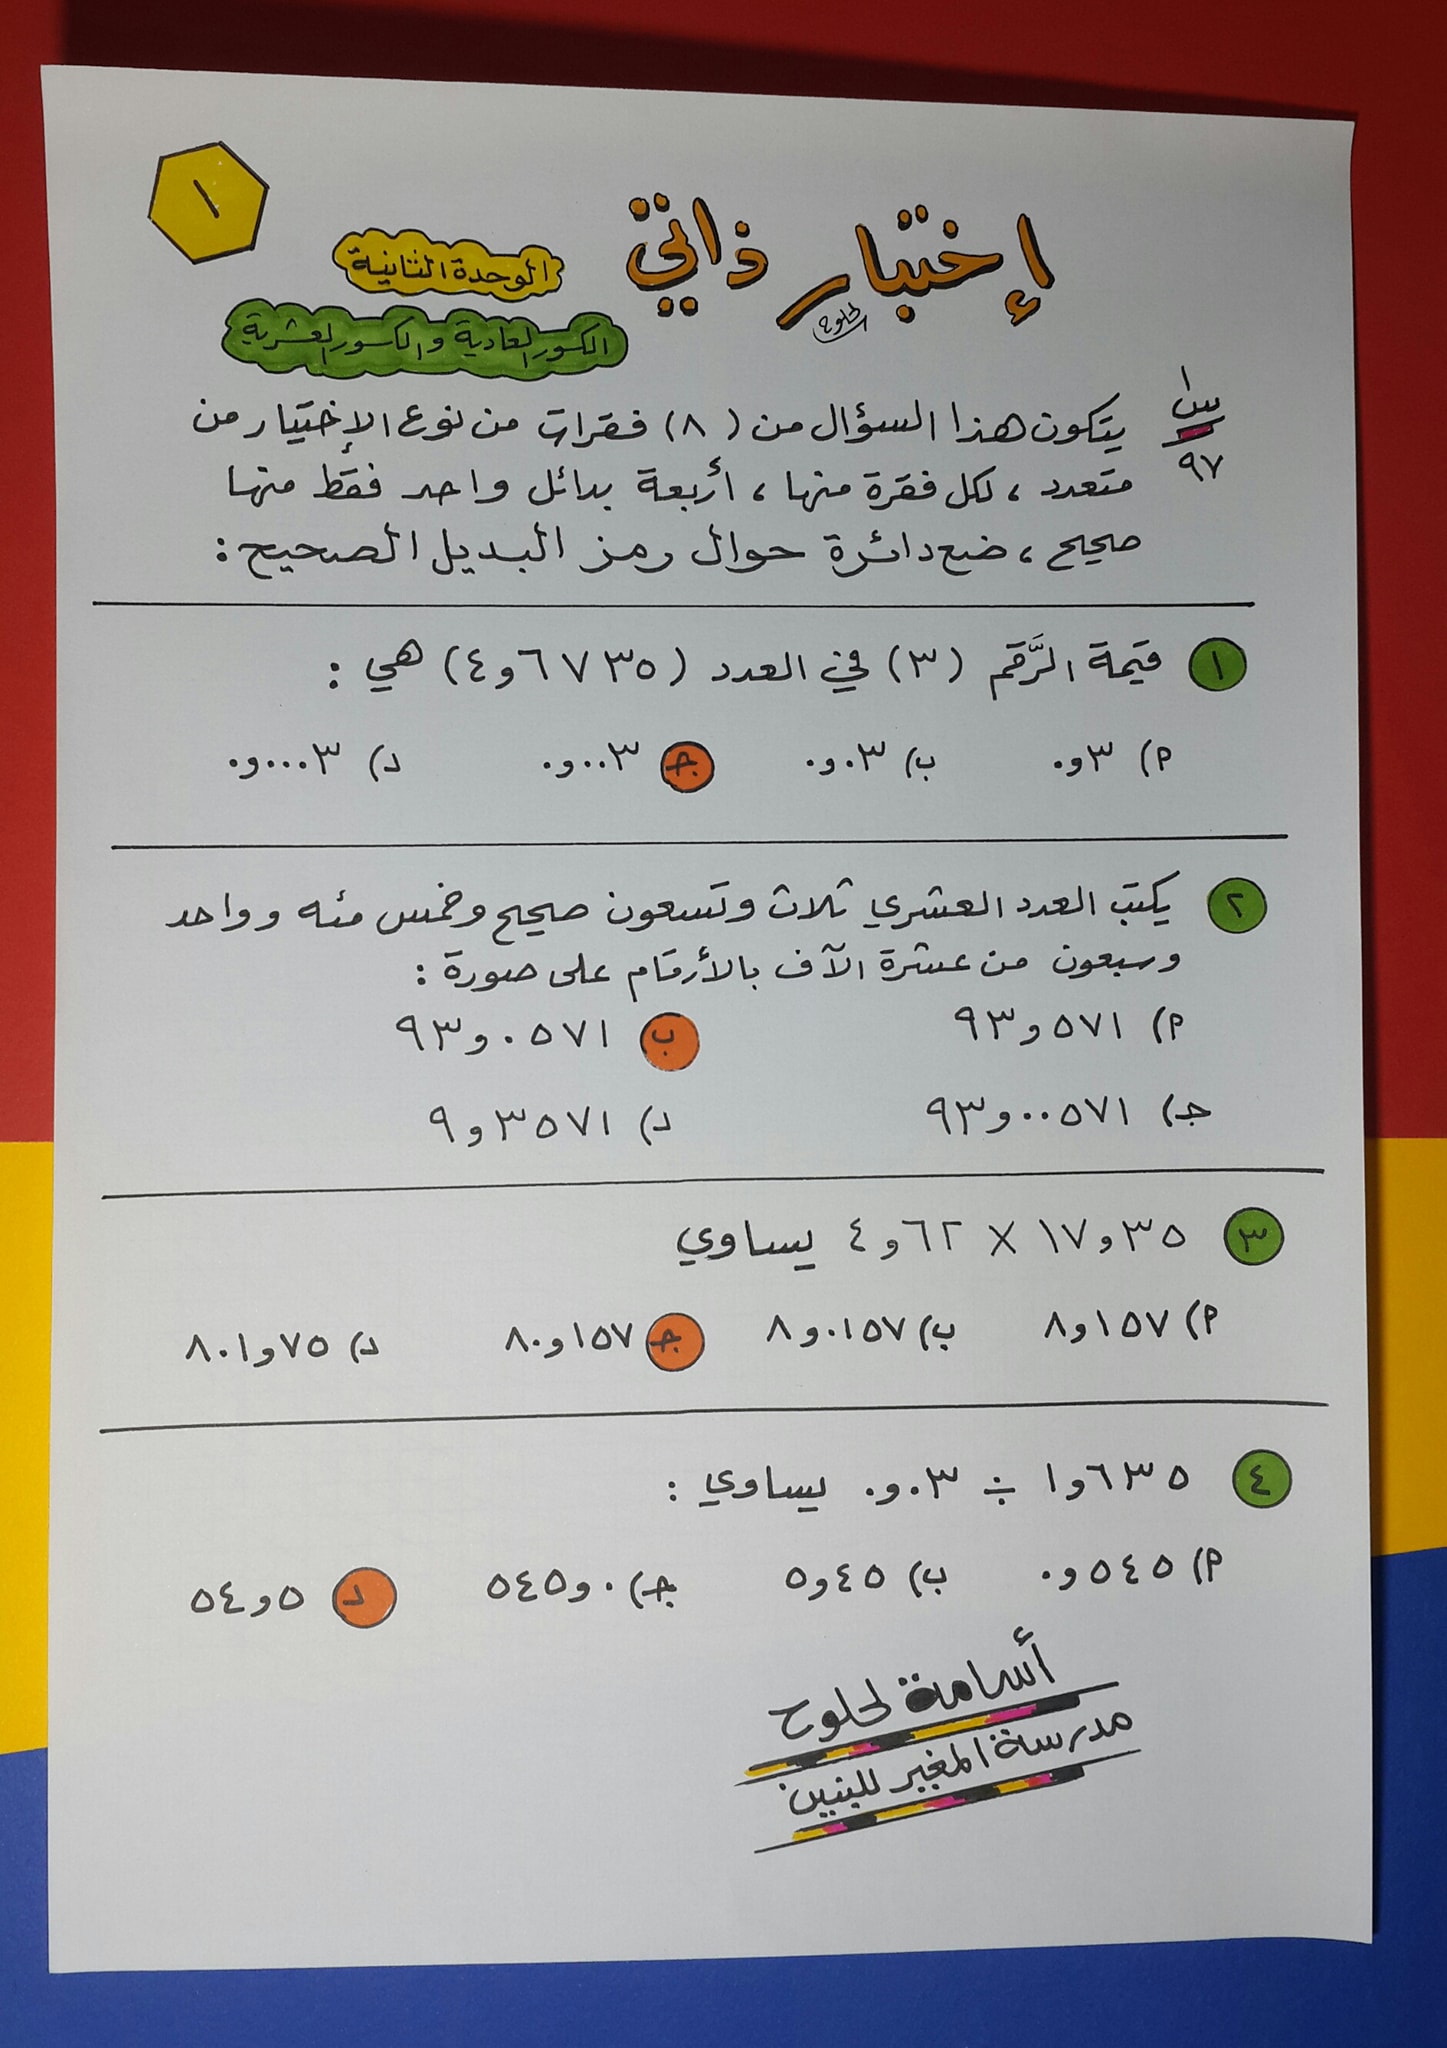 ١
إختبار ذاتي
لحلوح
الوحدة الثانية
الكسور العادية والكسور العشرية
س١
٩٧
يتكون هذا السؤال من (٨) فقرات من نوع الإختيار من
متعدد ، لكل فقرة منها ، أربعة بدائل واحد فقط منها
صحيح ، ضع دائرة حوال رمز البديل الصحيح :
١ قيمة الرَّقم (٣) في العدد (٤و٦٧٣٥) هي :
م) ٠و٣ ب) ٠و٠٣ جـ ٠و٠٠٣ د) ٠و٠٠٠٣
٢ يكتب العدد العشري ثلاث وتسعون صحيح وخمس مئه وواحد
وسبعون من عشرة الآف بالأرقام على صورة :
م) ٩٣و٥٧١ ب ٩٣و٠٥٧١
جـ) ٩٣و٠٠٥٧١ د) ٩و٣٥٧١
٣ ١٧و٣٥ × ٤و٦٢ يساوي
م) ٨و١٥٧ ب) ٨و٠١٥٧ جـ ٨٠و١٥٧ د) ٨٠١و٧٥
٤ ١و٦٣٥ ÷ ٠و٠٣ يساوي :
م) ٠و٥٤٥ ب) ٥و٤٥ جـ) ٥٤٥و٠ د ٥٤و٥
أسامة لحلوح
مدرسة المغير للبنين